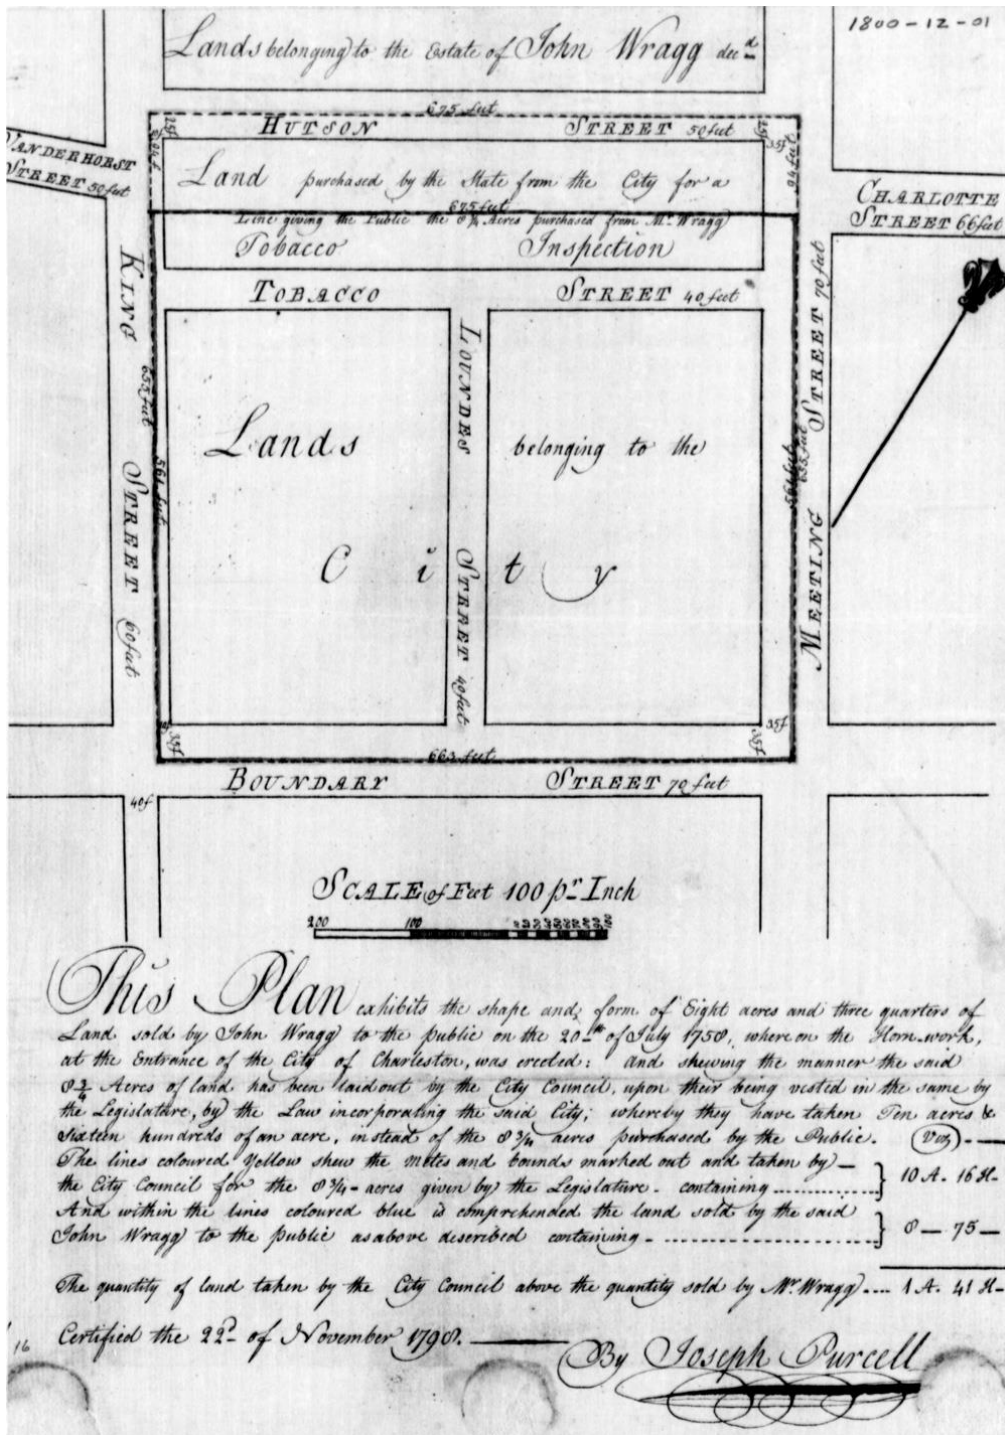 1800-12-01
Lands belonging to the Estate of John Wragg decd
675 feet
HUTSON STREET 50 feet
25f
25f
35f
VANDERHORST
STREET 50 feet
94 feet
Land purchased by the State from the City for a
675 feet
Line giving the Public the 8 3/4 Acres purchased from Mr. Wragg
Tobacco Inspection
CHARLOTTE
STREET 66 feet
TOBACCO STREET 40 feet
KING STREET 60 feet
LOUNDES STREET 40 feet
MEETING STREET 70 feet
655 feet
561 feet
561 feet
655 feet
Lands belonging to the
City
35f
35f
35f
663 feet
BOUNDARY STREET 70 feet
40f
SCALE of Feet 100 pr Inch
200 100
This Plan exhibits the shape and form of Eight acres and three quarters of
Land sold by John Wragg to the public on the 20th of July 1758, where on the Horn work,
at the Entrance of the City of Charleston, was erected: and shewing the manner the said
8 3/4 Acres of land has been laid out by the City Council, upon their being vested in the same by
the Legislature, by the Law incorporating the said City; whereby they have taken Ten acres &
Sixteen hundreds of an acre, instead of the 8 3/4 acres purchased by the Public. (Viz) -
The lines coloured Yellow shew the metes and bounds marked out and taken by
the City Council for the 8 3/4 acres given by the Legislature - containing ............ } 10 A. 16 H-
And within the lines coloured blue is comprehended the land sold by the said
John Wragg to the public as above described containing - ............ } 8 — 75 —
The quantity of land taken by the City Council above the quantity sold by Mr. Wragg .... 1 A. 41 H-
Certified the 22d of November 1798.
By Joseph Purcell
16